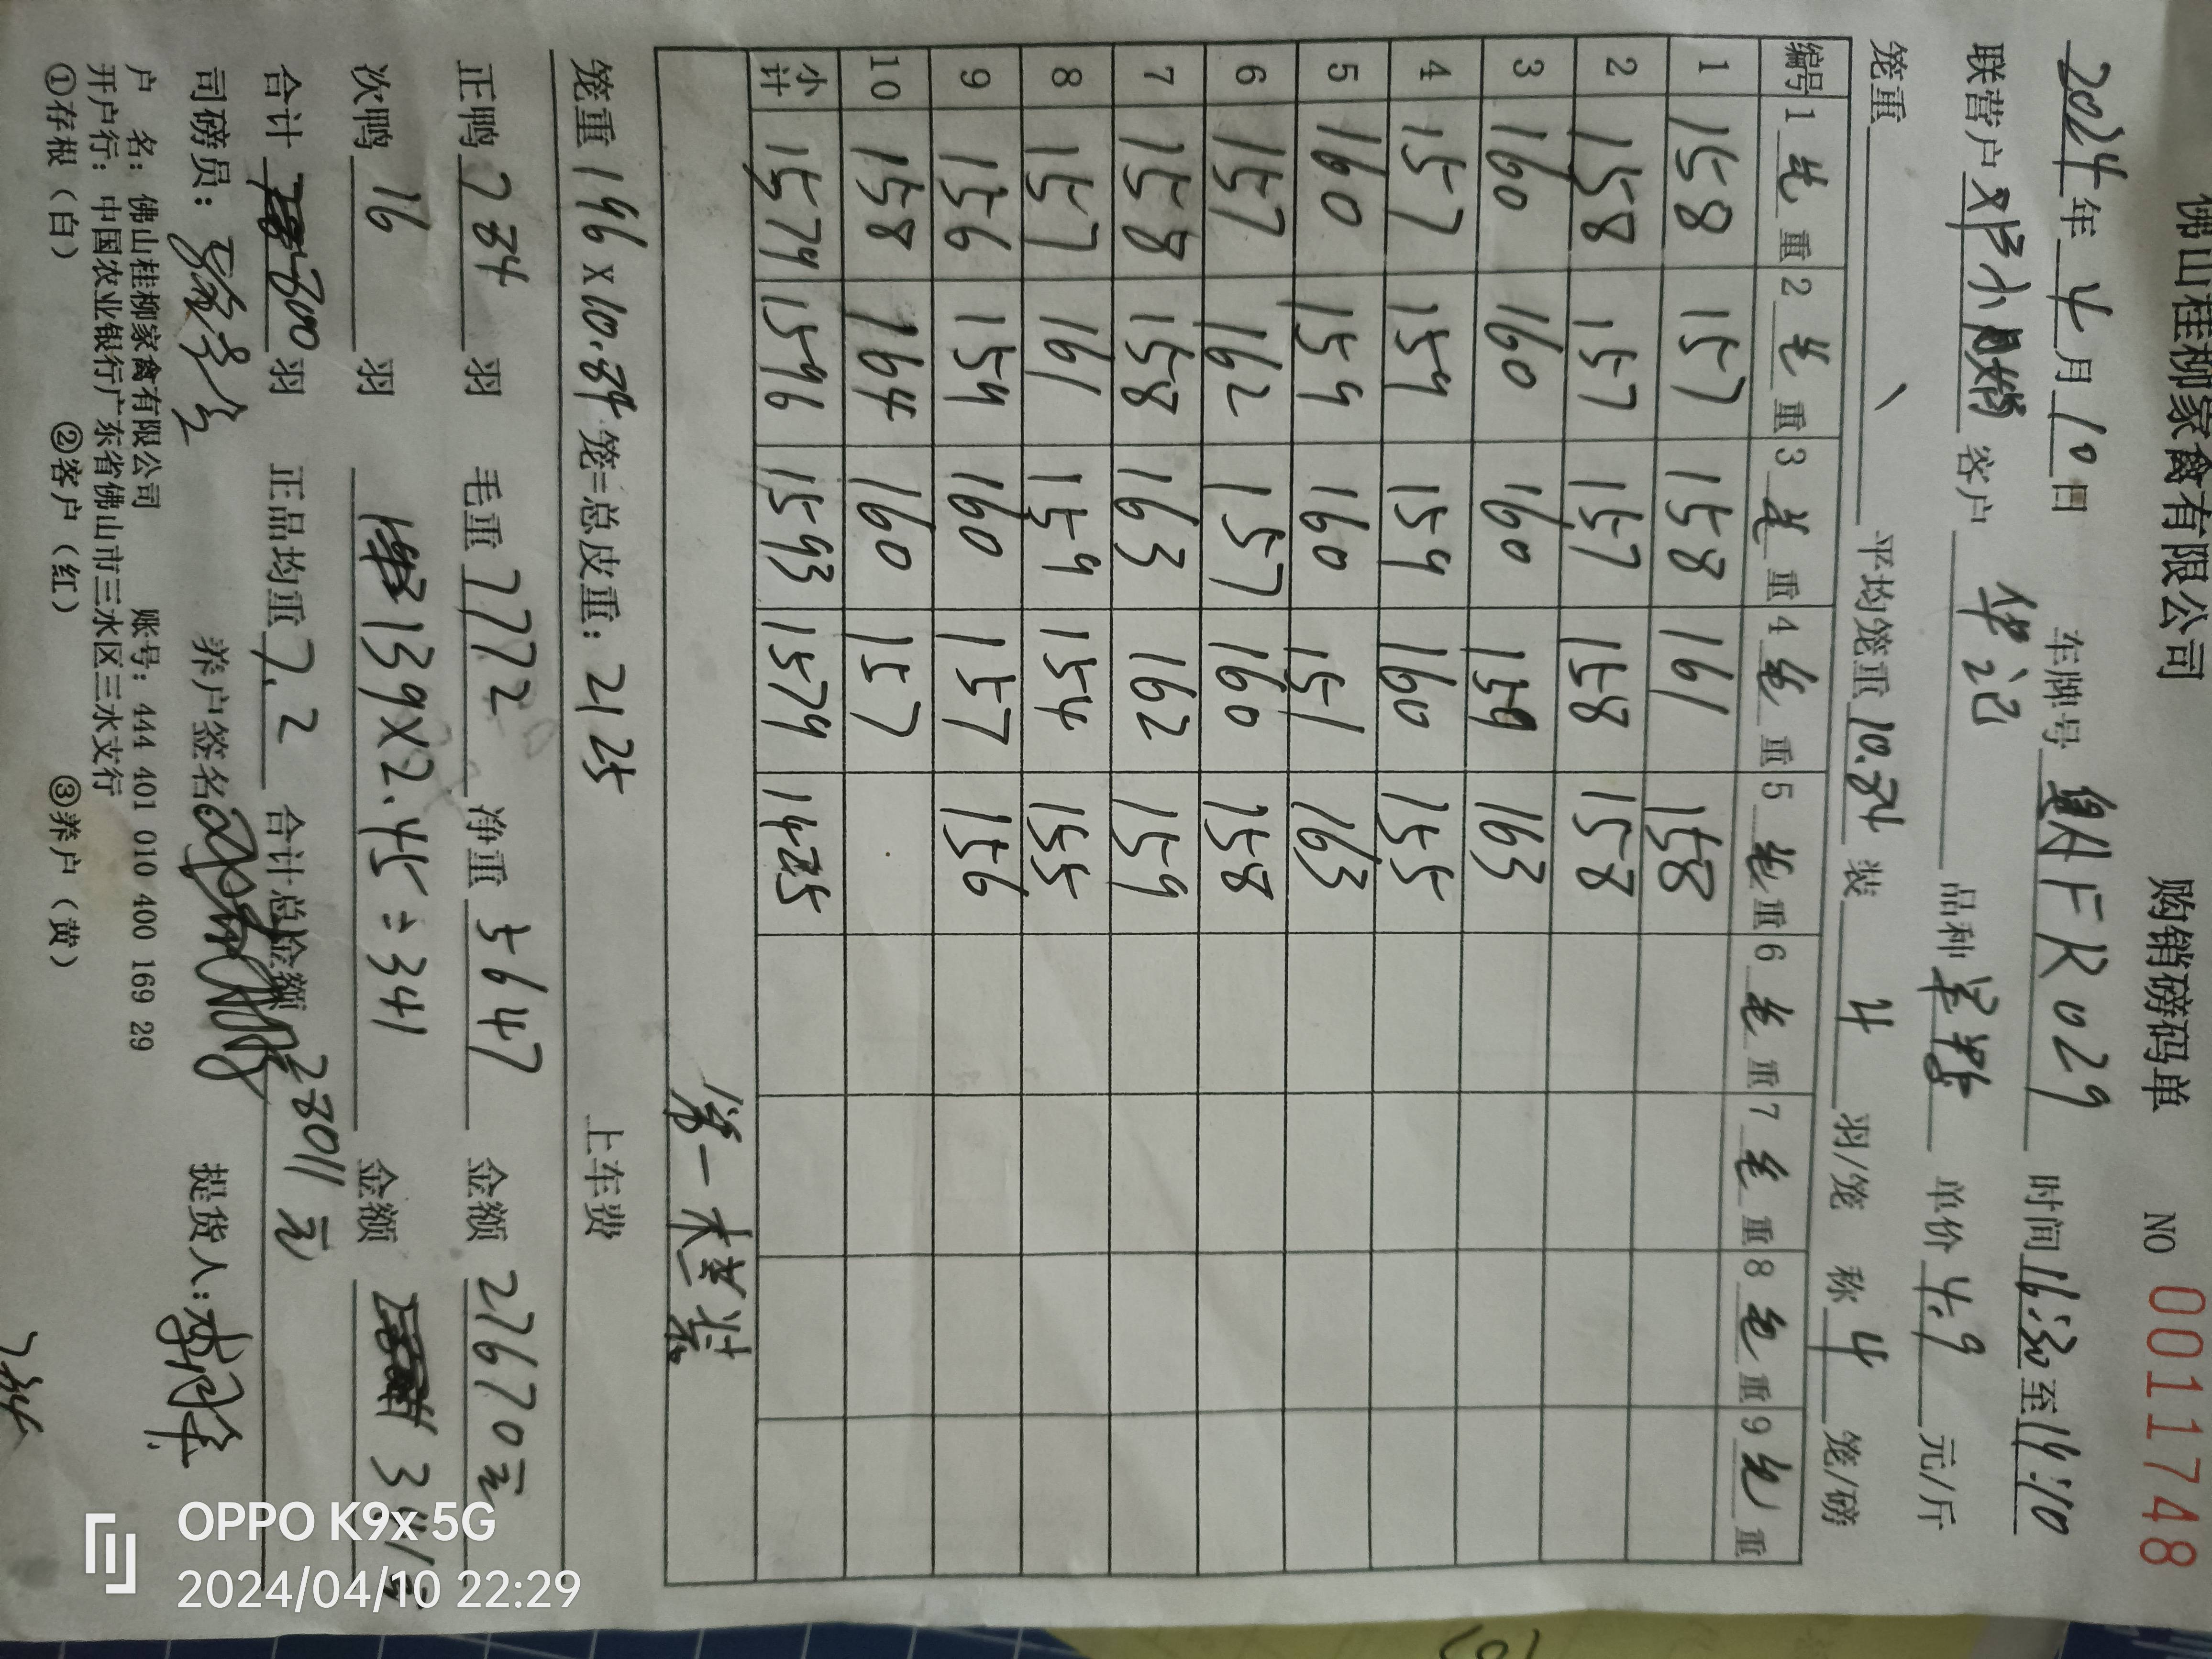 佛山桂柳家禽有限公司 购销磅码单 NO 0011748
2024年 4月 10日 车牌号 AFR029 时间 16:30 至 19:10
联营户 邓小娟 客户 华记 品种 单价 4.9 元/斤
笼重 平均笼重 10.84 装 4 羽/笼 称 4 笼/磅
编号 1 毛 重 2 毛 重 3 毛 重 4 毛 重 5 毛 重 6 毛 重 7 毛 重 8 毛 重 9 毛 重
1 158 157 158 161 158
2 158 157 157 158 158
3 160 160 160 159 163
4 157 159 159 160 155
5 160 159 160 151 163
6 157 162 157 160 158
7 158 158 163 162 159
8 157 161 159 154 155
9 156 159 160 157 156
10 158 164 160 157
小计 1579 1596 1593 1579 1425
第一大栏装
笼重 196 x 10.84 笼=总皮重: 2125 上车费
正鸭 784 羽 毛重 7772 净重 5647 金额 27670元
次鸭 16 羽 139 x 2.45 = 341 金额 341元
合计 800 羽 正品均重 7.2 合计总金额 28011 元
司磅员: 养户签名 提货人:
户 名: 佛山桂柳家禽有限公司 账号: 444 401 010 400 169 29
开户行: 中国农业银行广东省佛山市三水区三水支行
①存根(白) ②客户(红) ③养户(黄)
OPPO K9x 5G
2024/04/10 22:29